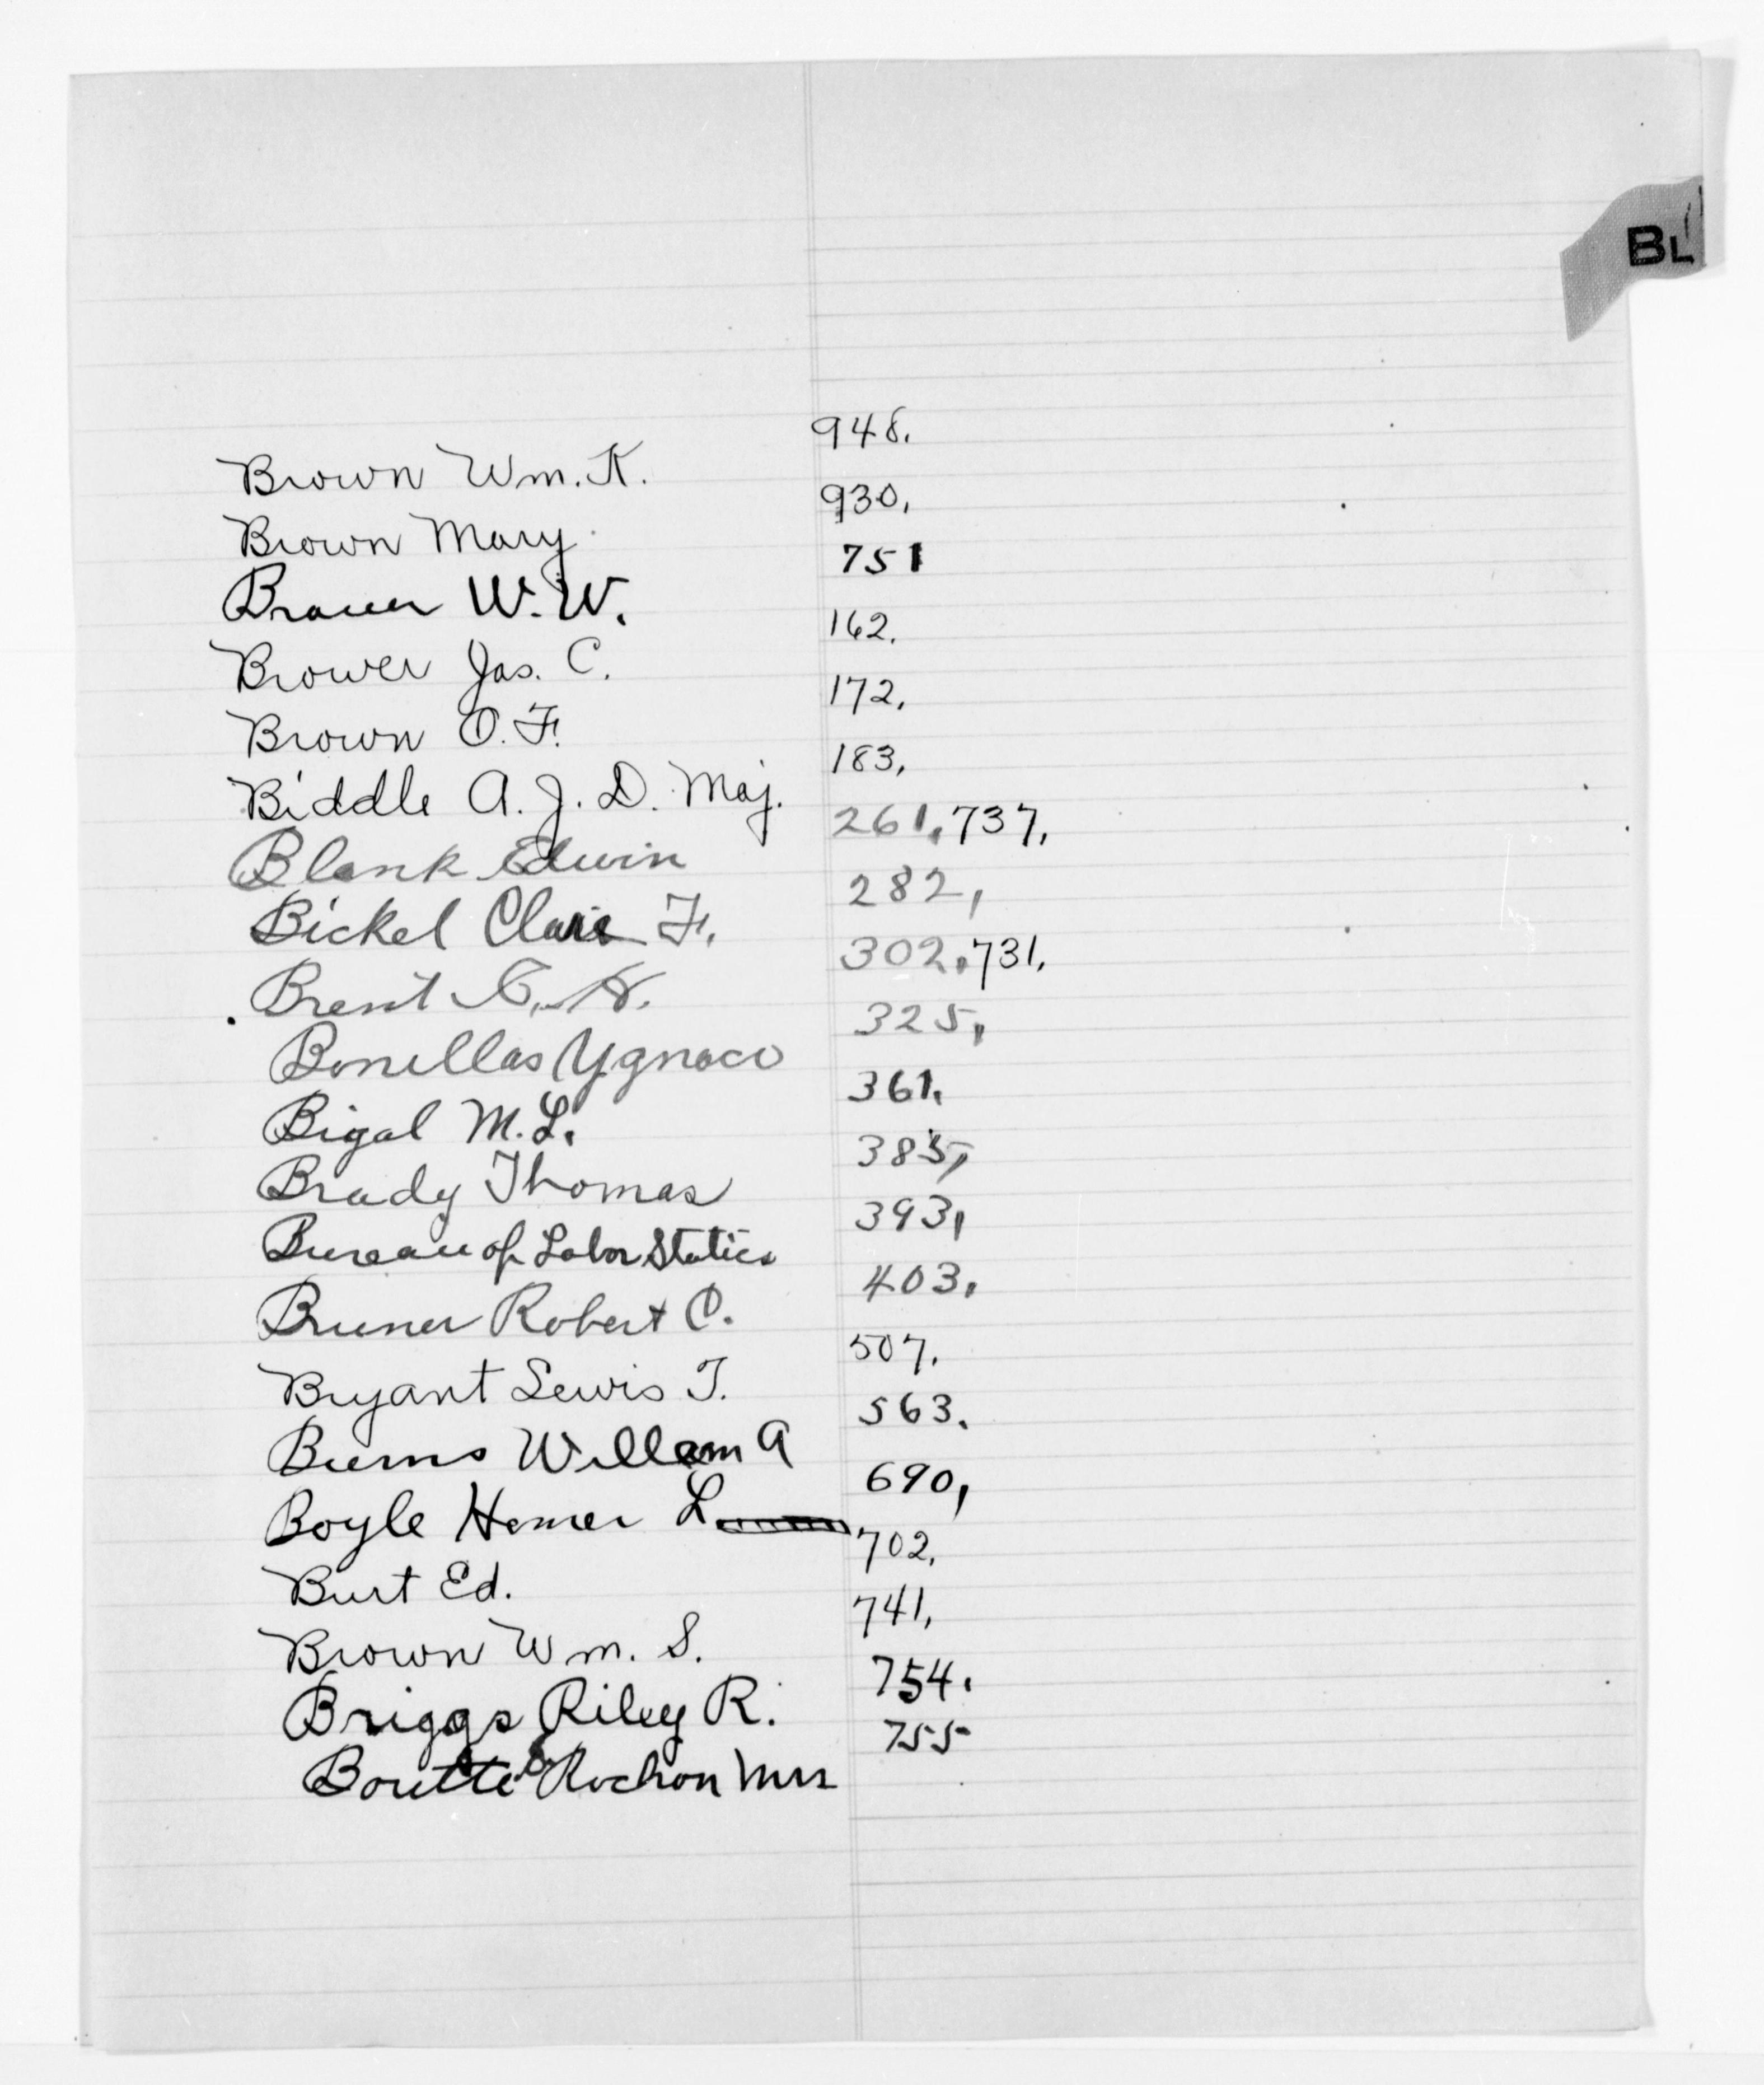 BL
Brown Wm. K. 948.
Brown Mary 930,
Brauer W. W. 751
Brower Jas. C. 162.
Brown O. F. 172,
Biddle A. J. D. Maj. 183,
Blank Edwin 261, 737,
Bickel Clair F. 282,
Brent C. H. 302, 731,
Bonillas Ygnaco 325,
Bigal M. L. 361,
Brady Thomas 385,
Bureau of Labor Statics 393,
Bruner Robert O. 403,
Bryant Lewis T. 507,
Burns William A 563.
Boyle Homer L 690,
Burt Ed. 702,
Brown Wm. S. 741,
Briggs Riley R. 754.
Boutte Rochon Mrs 755